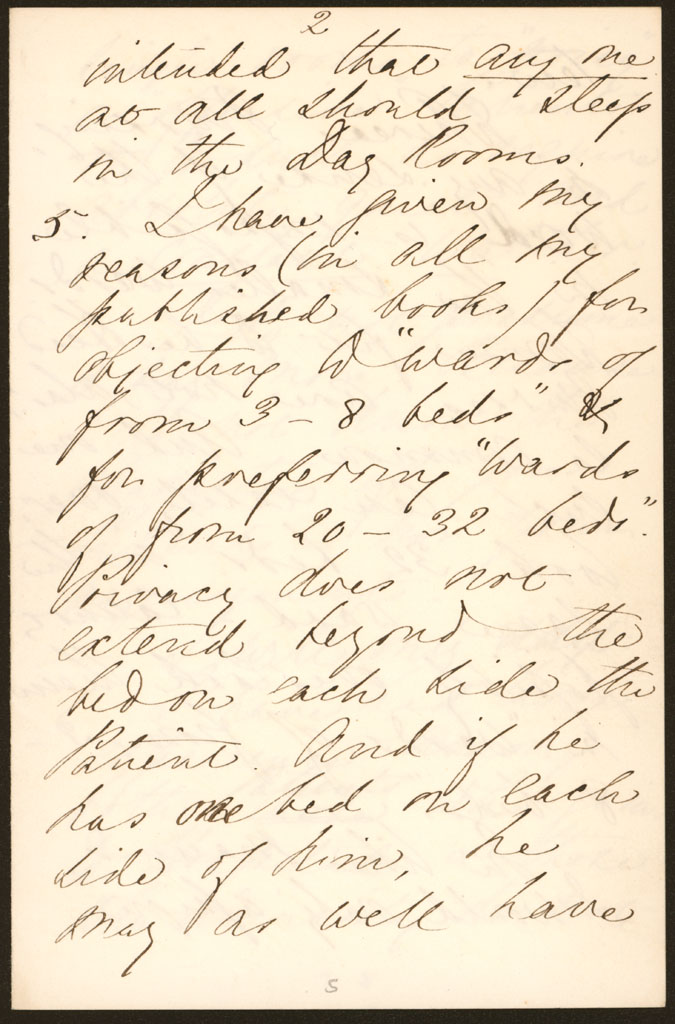 2
intended that any one
at all should sleep
in the Day Rooms.
5. I have given my
reasons (in all my
published books) for
objecting to "wards of
from 3 - 8 beds" &
for preferring "wards
of from 20 - 32 beds".
Privacy does not
extend beyond the
bed on each side the
Patient. And if he
has one bed on each
side of him, he
may as well have
5